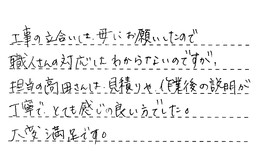 工事の立合いは、母にお願いしたので
職人さんの対応はわからないのですが、
担当の高田さんは見積りや作業後の説明が
丁寧で、とても感じの良い方でした。
大変満足です。